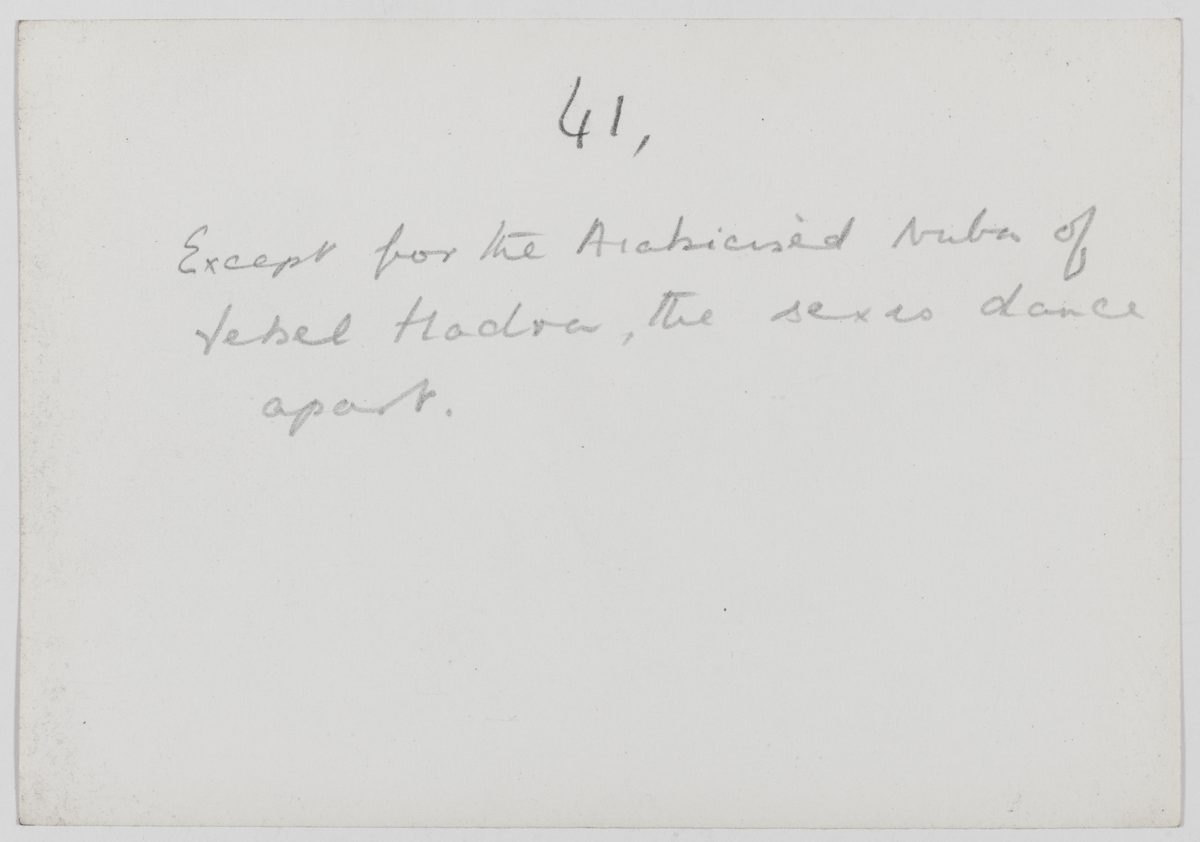 41,
Except for the Arabicised Nuba of
Jebel Hadra, the sexes dance
apart.